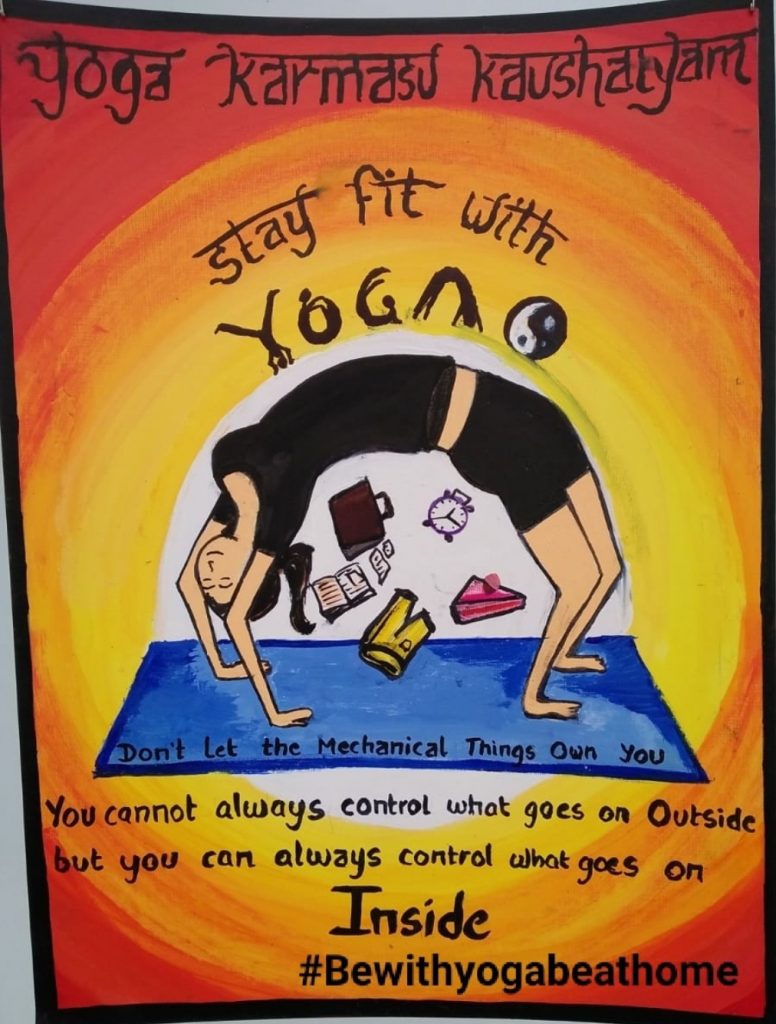 Yoga Karmasu Kaushalyam
stay fit with
YOGA
Don't Let the Mechanical Things Own You
You cannot always control what goes on Outside
but you can always control what goes on
Inside
#Bewithyogabeathome